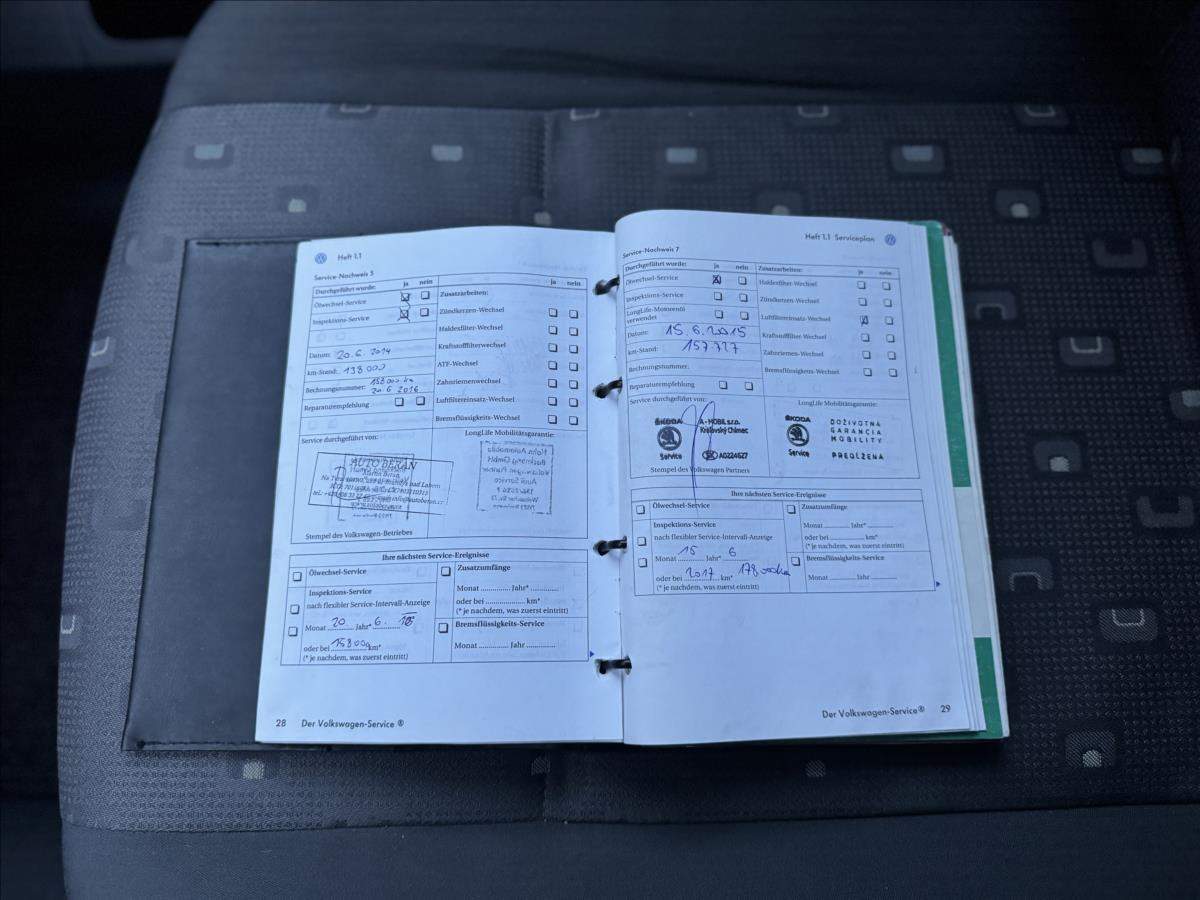 Heft 1.1
Service-Nachweis 5
Durchgeführt wurde: ja nein
Ölwechsel-Service
Inspektions-Service
Datum: 20.6.2014
km-Stand: 138 000
Rechnungsnummer: 158 000 km
20 6 2016
Reparaturempfehlung
Zusatzarbeiten: ja nein
Zündkerzen-Wechsel
Haldexfilter-Wechsel
Kraftstofffilterwechsel
ATF-Wechsel
Zahnriemenwechsel
Luftfiltereinsatz-Wechsel
Bremsflüssigkeits-Wechsel
Service durchgeführt von:
AUTO BERAN
Stempel des Volkswagen-Betriebes
LongLife Mobilitätsgarantie:
Ihre nächsten Service-Ereignisse
Ölwechsel-Service
Inspektions-Service
nach flexibler Service-Intervall-Anzeige
Monat 20 Jahr* 6.
oder bei 158 000 km*
(* je nachdem, was zuerst eintritt)
Zusatzumfänge
Monat Jahr*
oder bei km*
(* je nachdem, was zuerst eintritt)
Bremsflüssigkeits-Service
Monat Jahr
28 Der Volkswagen-Service ®
Heft 1.1 Serviceplan
Service-Nachweis 7
Durchgeführt wurde: ja nein
Ölwechsel-Service
Inspektions-Service
LongLife-Motorenöl
verwendet
Datum: 15.6.2015
km-Stand: 157 727
Rechnungsnummer:
Reparaturempfehlung
Zusatzarbeiten: ja nein
Haldexfilter-Wechsel
Zündkerzen-Wechsel
Luftfiltereinsatz-Wechsel
Kraftstofffilter-Wechsel
Zahnriemen-Wechsel
Bremsflüssigkeits-Wechsel
Service durchgeführt von:
ŠKODA
Service
A - MOBIL s.r.o.
Kráľovský Chlmec
A0224627
Stempel des Volkswagen Partners
LongLife Mobilitätsgarantie:
ŠKODA
Service
DOŽIVOTNÁ
GARANCIA
MOBILITY
PREDĹŽENÁ
Ihre nächsten Service-Ereignisse
Ölwechsel-Service
Inspektions-Service
nach flexibler Service-Intervall-Anzeige
Monat 15 Jahr* 6
oder bei 2017 km* 178 000km
(* je nachdem, was zuerst eintritt)
Zusatzumfänge
Monat Jahr*
oder bei km*
(* je nachdem, was zuerst eintritt)
Bremsflüssigkeits-Service
Monat Jahr
Der Volkswagen-Service® 29